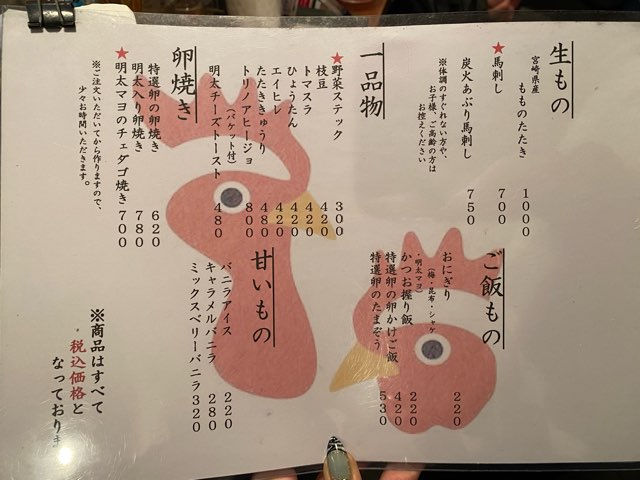 生もの
宮崎県産
もものたたき 1000
★馬刺し 700
炭火あぶり馬刺し 750
※体調のすぐれない方や、
お子様、ご高齢の方は
お控えください
一品物
★野菜スティック 300
枝豆 420
トマスラ 420
ひょうたん 420
エイヒレ 420
たたききゅうり 480
トリノアヒージョ 800
(バケット付)
明太チーズトースト 480
卵焼き
特選卵の卵焼き 620
明太入り卵焼き 780
★明太マヨのチェダゴ焼き 700
※ご注文いただいてから作りますので、
少々お時間いただきます。
ご飯もの
おにぎり 220
(梅・昆布・シャケ
・明太マヨ)
かつお握り飯 220
特選卵の卵かけご飯 420
特選卵のたまぞう 530
甘いもの
バニラアイス 220
キャラメルバニラ 280
ミックスベリーバニラ 320
※商品はすべて
税込価格と
なっておりま